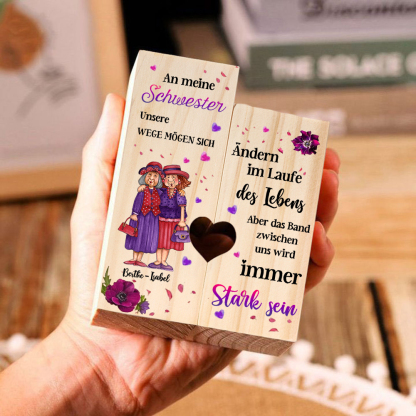 An meine
Schwester
Unsere
WEGE MÖGEN SICH
Berthe - Isabel
Ändern
im Laufe
des Lebens
Aber das Band
zwischen
uns wird
immer
Stark sein
THE SOLACE O